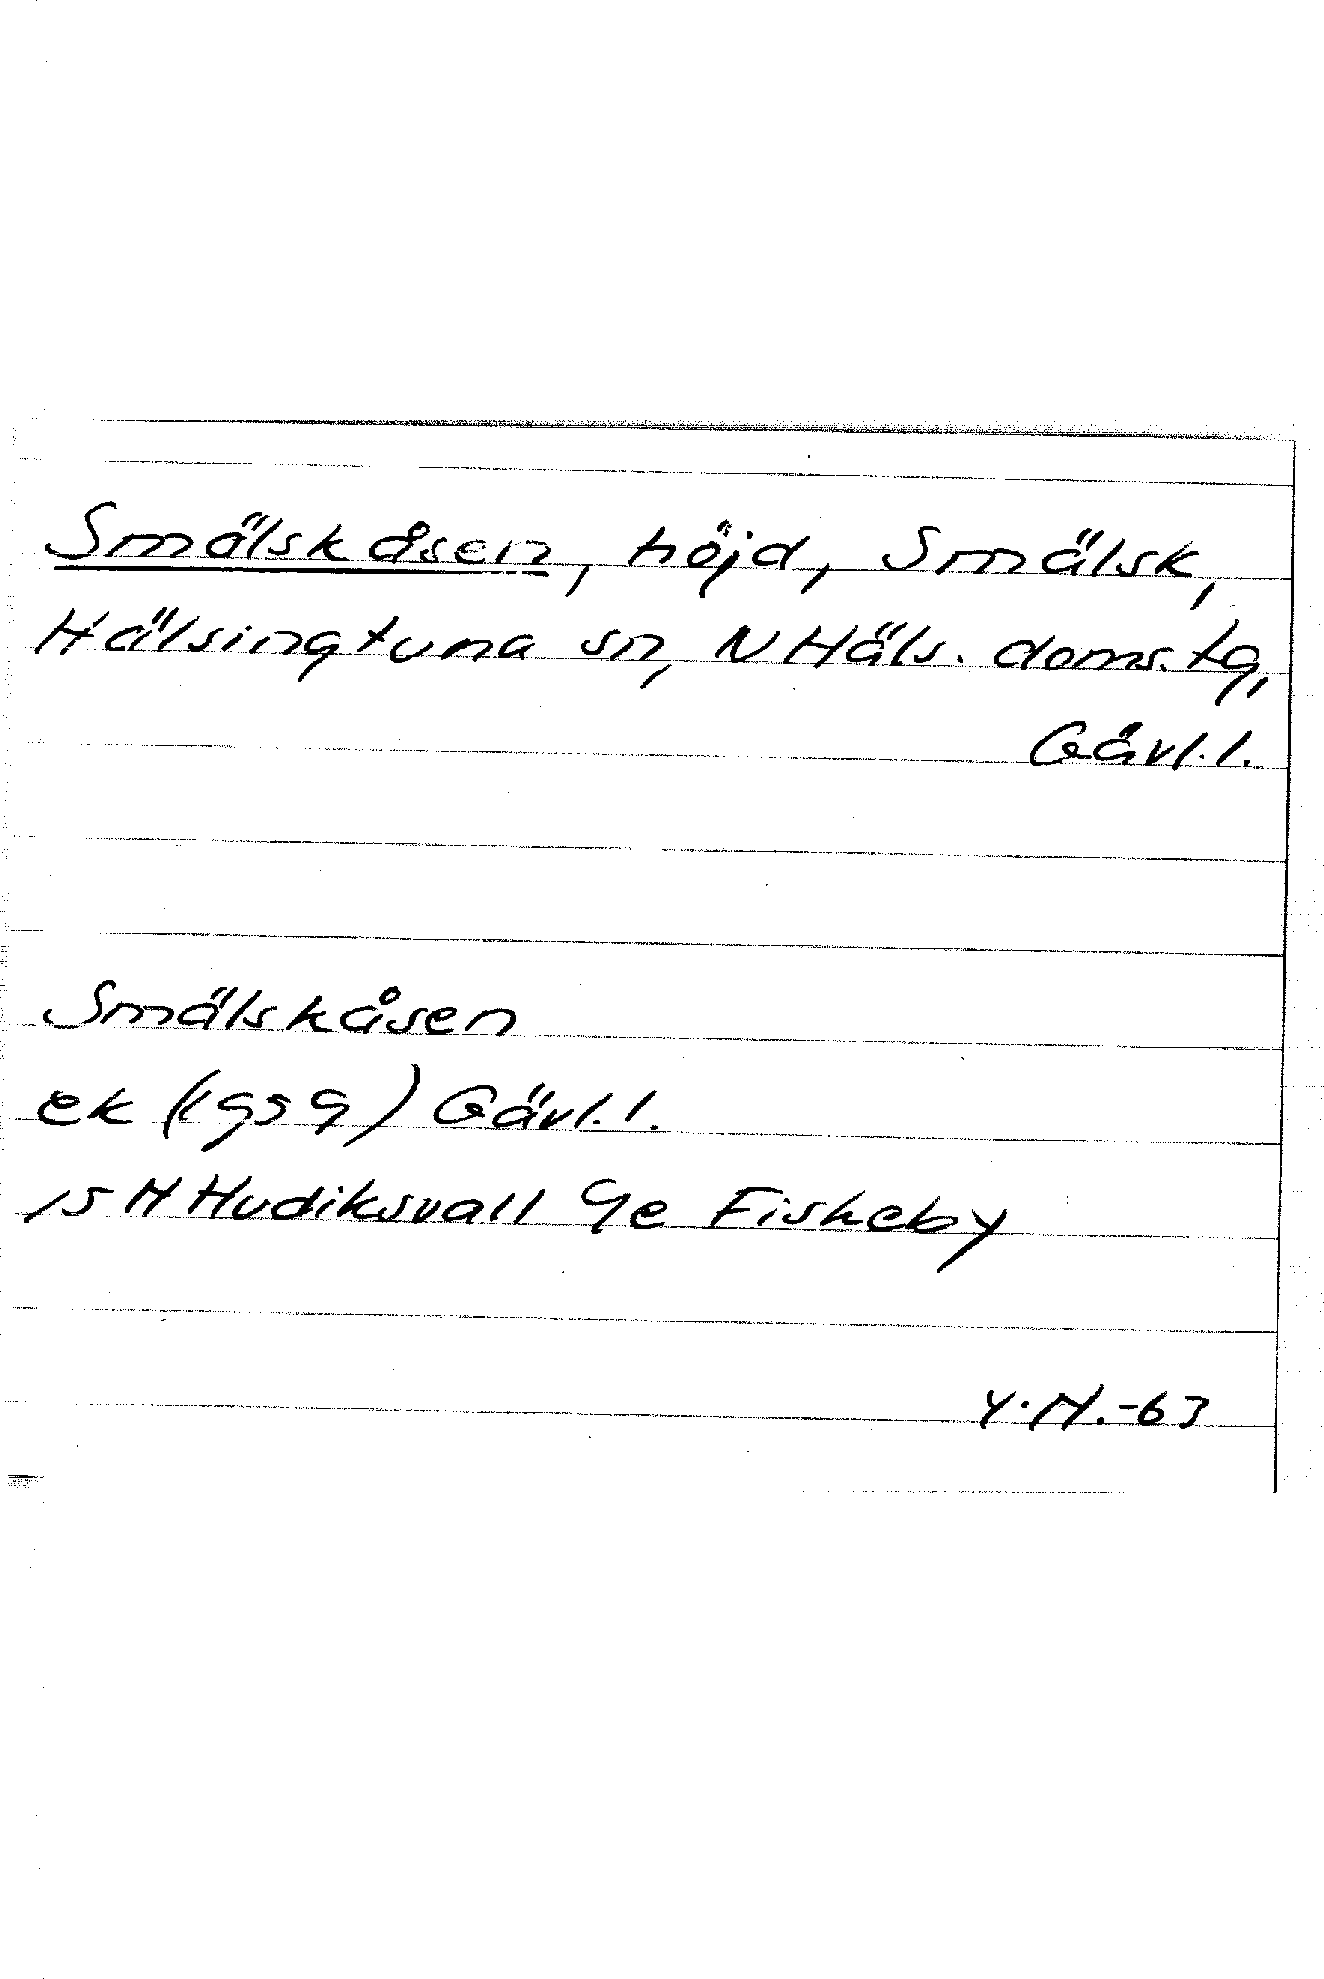 Smälskåsen, höjd, Smälsk,
Hälsingtuna sn, N Häls. doms. tg,
Gävl. l.
Smälskåsen
ek (1959) Gävl. l.
15 H Hudiksvall 9e Fiskeby
Y.N.-63